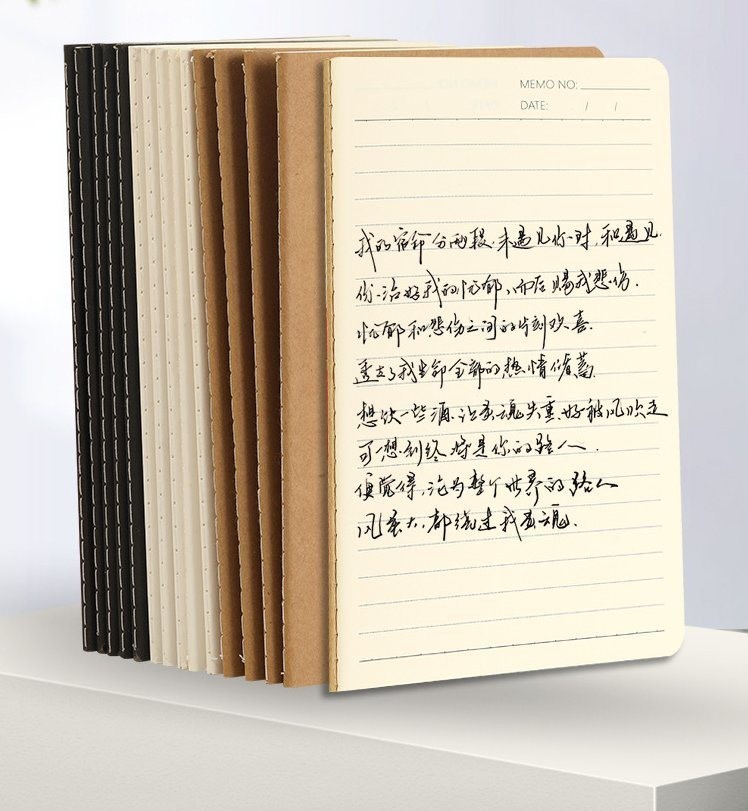 MEMO NO:
DATE: / /
我的宿命分两段,未遇见你时,和遇见
你.治好我的忧郁,而后赐我悲伤.
忧郁和悲伤之间的片刻欢喜.
透支了我生命全部的热情储蓄.
想饮一些酒.让灵魂失重.好被风吹走
可一想到终将是你的路人.
便觉得,沦为整个世界的路人
风虽大,都绕过我灵魂.